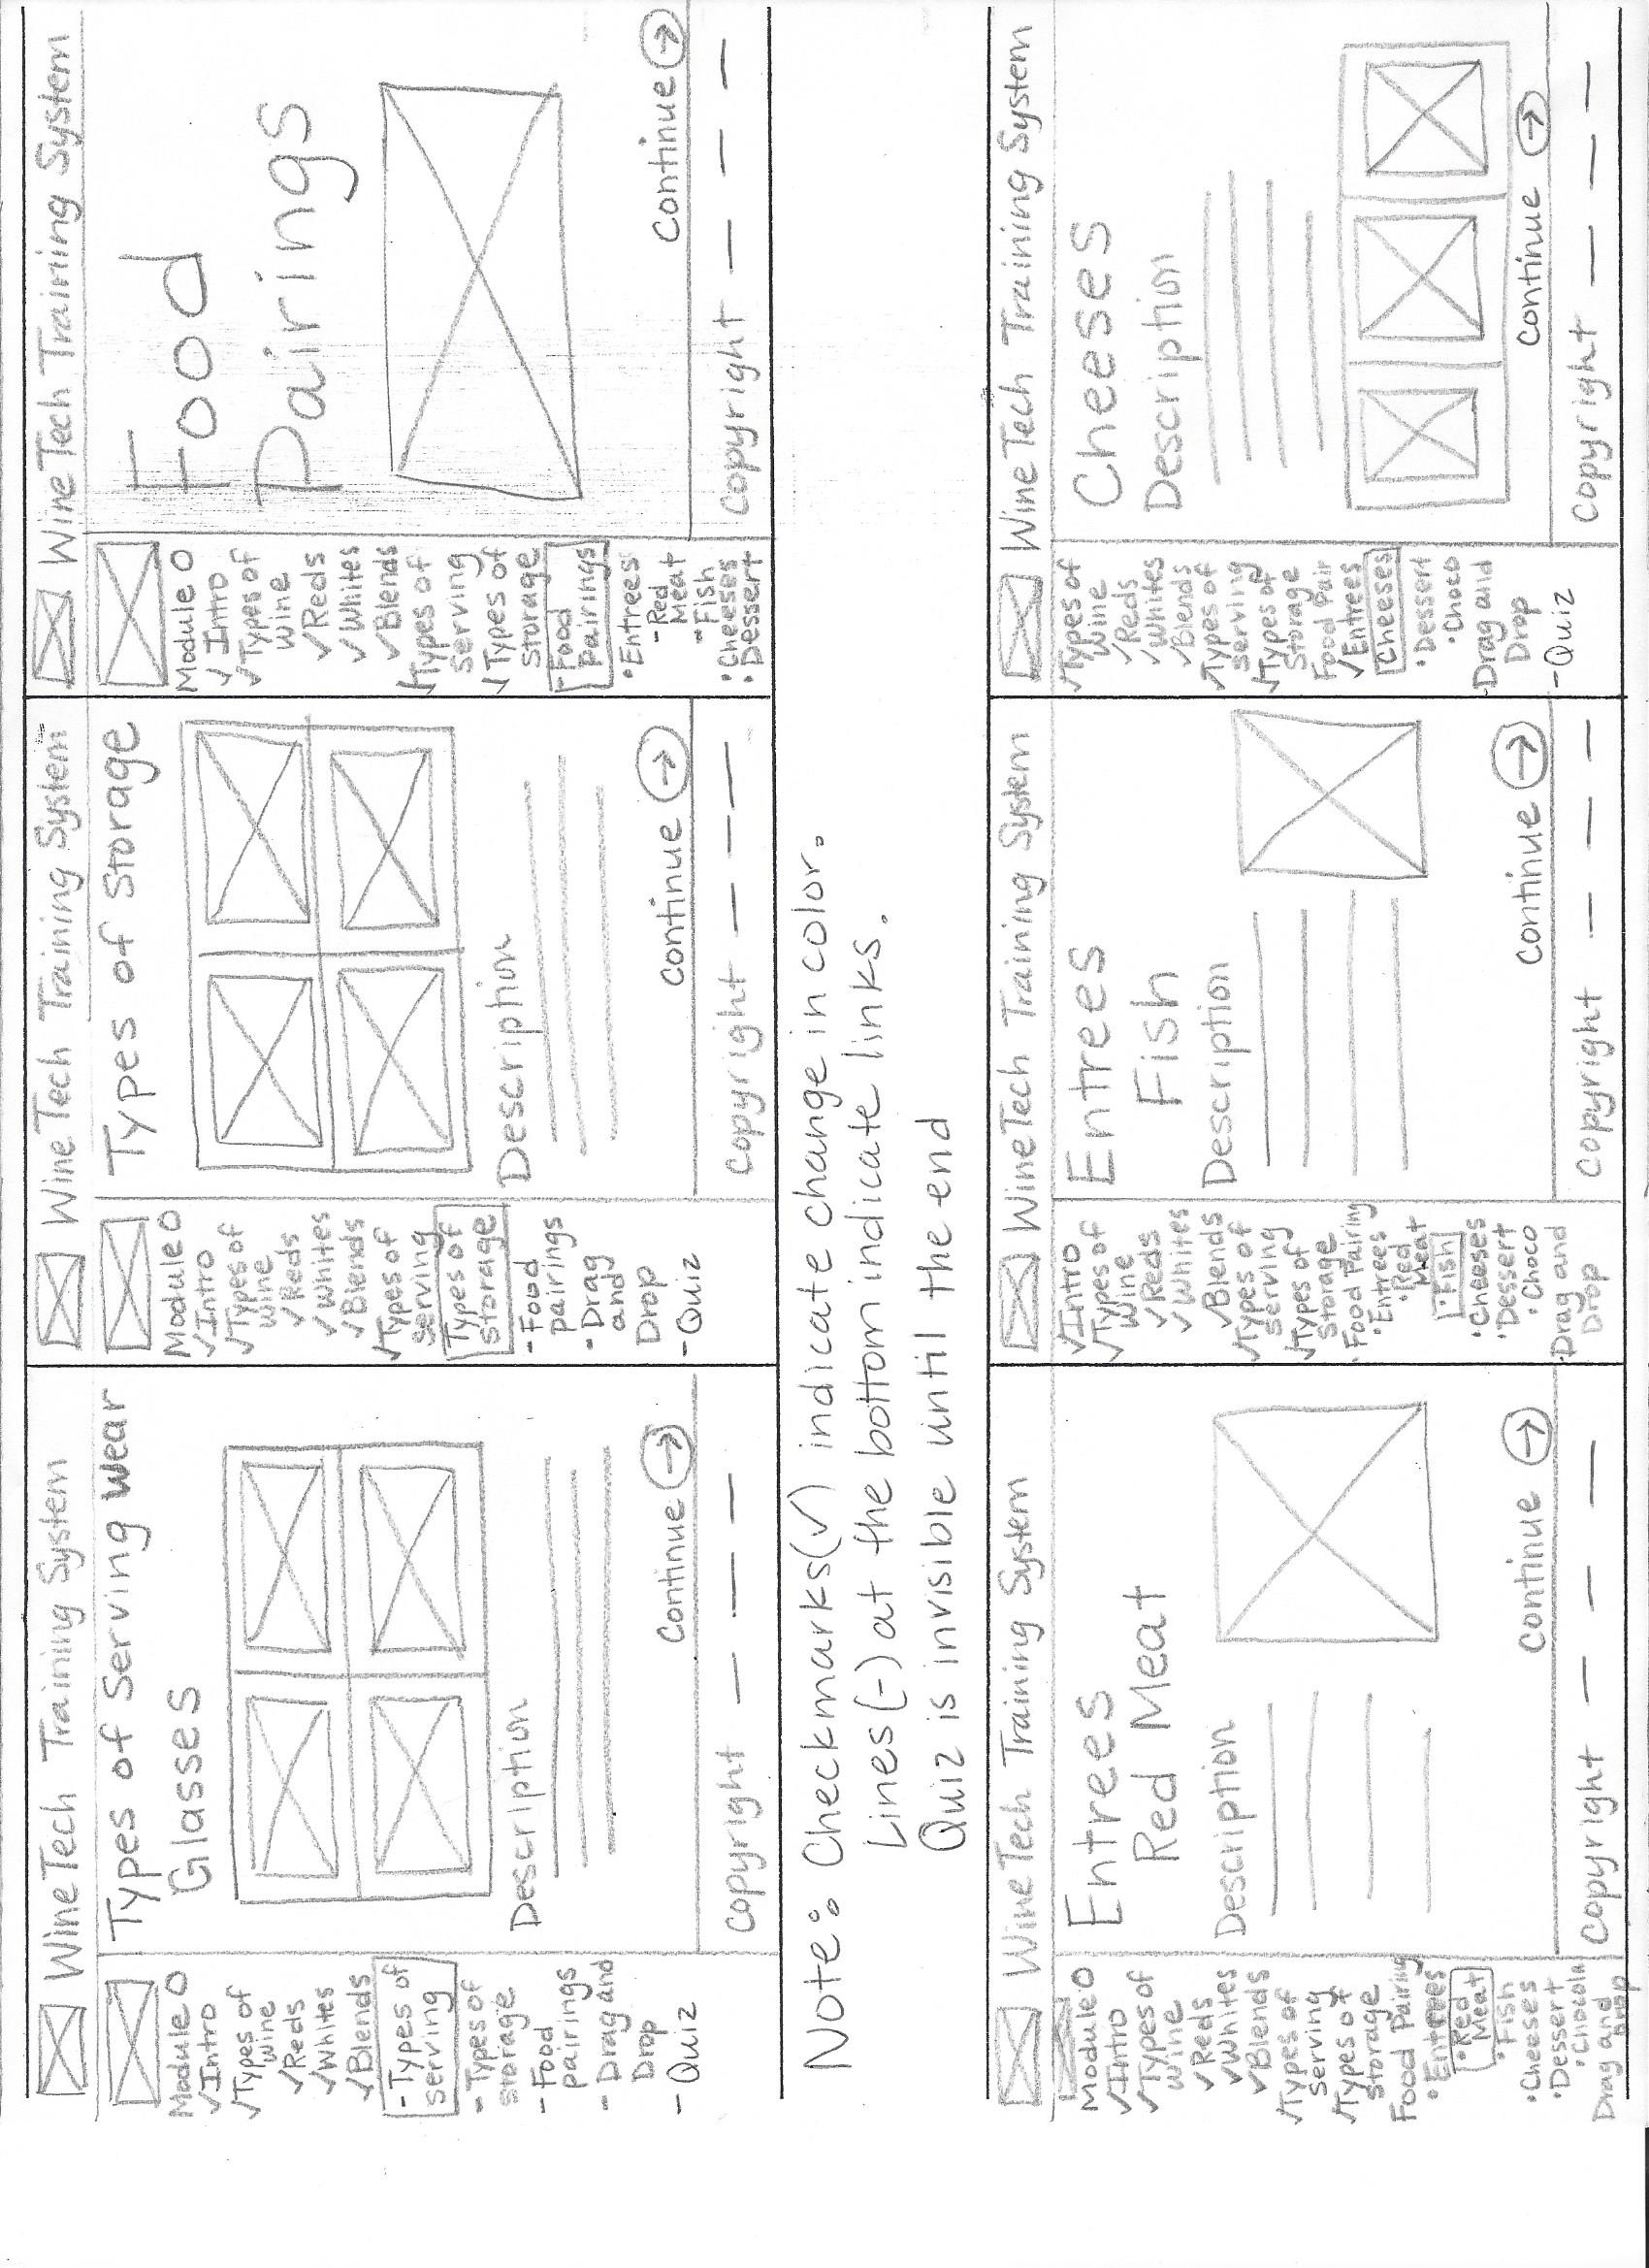 WineTech Training System
Module O
✓Intro
✓Types of
wine
✓Reds
✓Whites
✓Blends
-Types of
serving
- Types of
storage
- Food
pairings
- Drag and
Drop
- Quiz
Types of Serving Wear
Glasses
Description
Continue →
Copyright — — —
WineTech Training System
Module O
✓Intro
✓Types of
wine
✓Reds
✓Whites
✓Blends
✓Types of
serving
Types of
storage
- Food
pairings
- Drag
and
Drop
- Quiz
Types of Storage
Description
Continue →
Copyright — — —
WineTech Training System
Module O
✓ Intro
✓Types of
wine
✓Reds
✓Whites
✓Blends
✓Types of
serving
✓Types of
storage
-Food
Pairings
•Entrees
-Red
Meat
-Fish
•Cheeses
•Dessert
Food
Pairings
Continue →
Copyright — — —
Note: Checkmarks(✓) indicate change in color.
Lines(-) at the bottom indicate links.
Quiz is invisible until the end
WineTech Training System
Module O
✓Intro
✓Types of
wine
✓Reds
✓Whites
✓Blends
✓Types of
Serving
✓Types of
storage
Food Pairing
•Entrees
•Red
Meat
•Fish
•Cheeses
•Dessert
•Chocola
Drag and
Drop
Entrees
Red Meat
Description
Continue →
Copyright — — —
WineTech Training System
✓Intro
✓Types of
Wine
✓Reds
✓Whites
✓Blends
✓Types of
serving
✓Types of
Storage
•Food Pairing
•Entrees
•Red
Meat
•Fish
•Cheeses
•Dessert
•Choco
Drag and
Drop
Entrees
Fish
Description
Continue →
Copyright — — —
WineTech Training System
✓Types of
Wine
✓Reds
✓Whites
✓Blends
✓Types of
serving
✓Types of
Storage
Food Pair
✓Entrees
Cheeses
•Dessert
•Choco
-Drag and
Drop
-Quiz
Cheeses
Description
Continue →
Copyright — — —